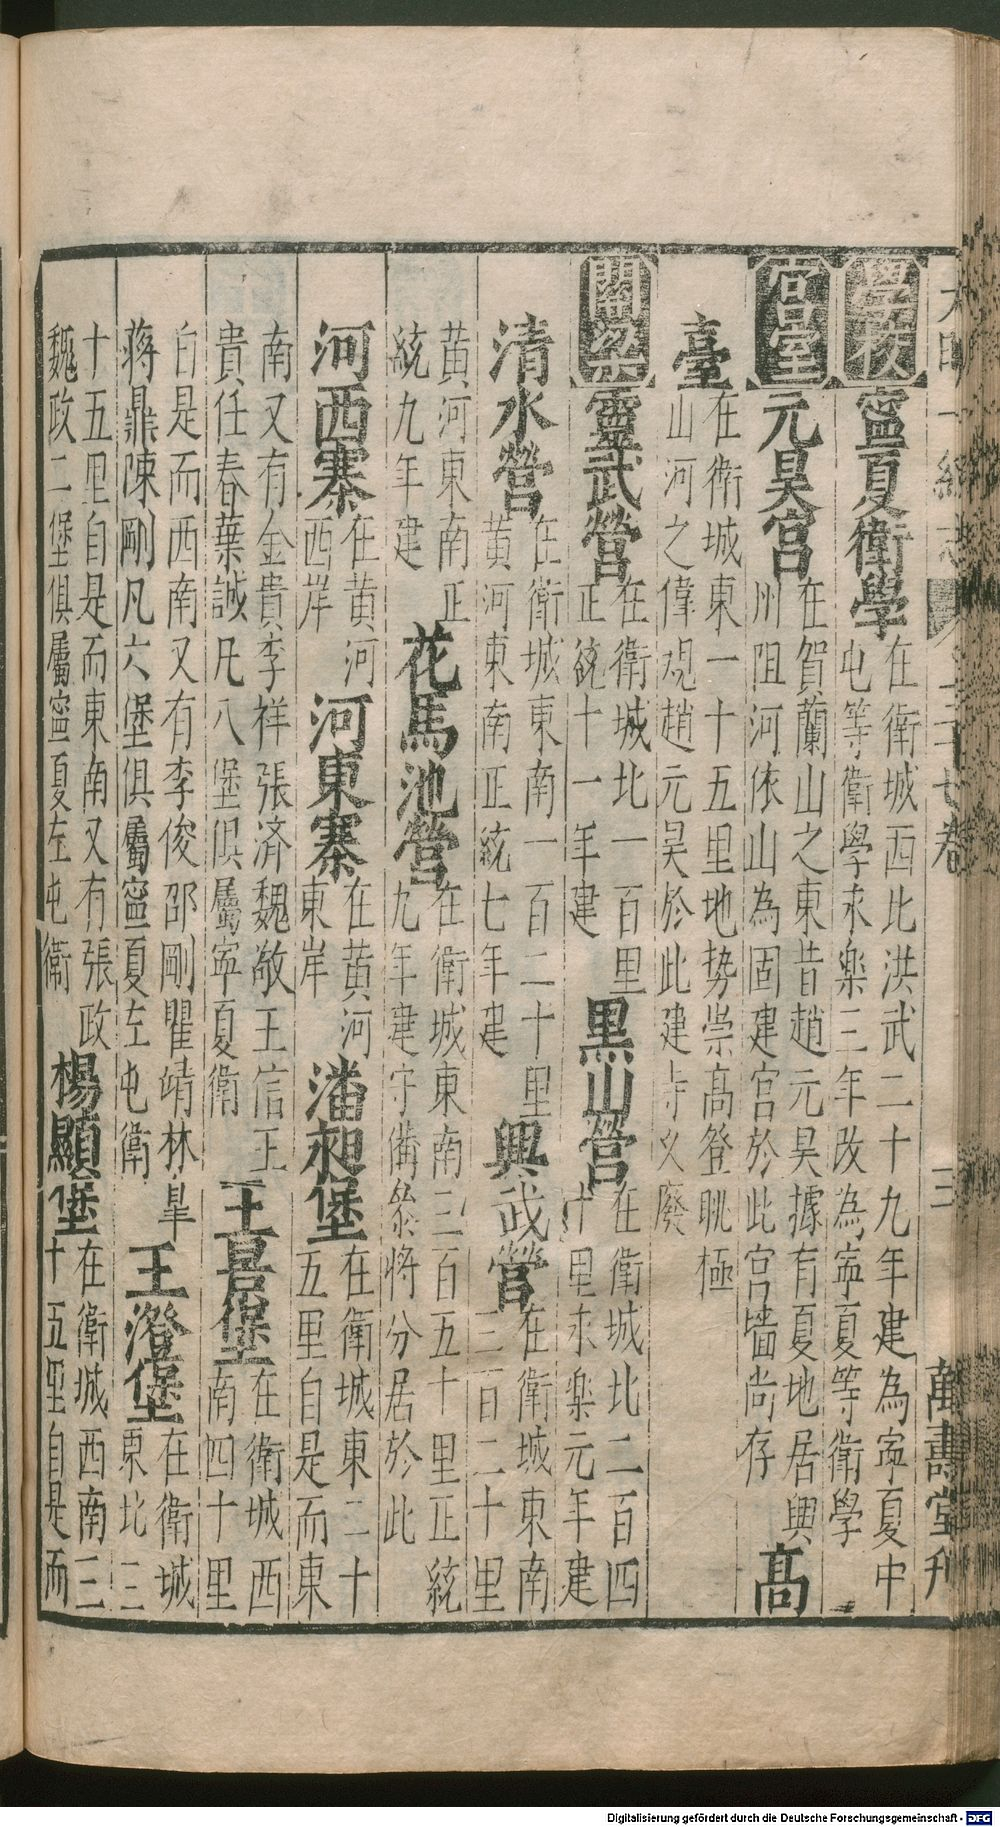 大明一統志 三十七卷 三 萬壽堂刋
學校 寧夏衛學 在衛城西北洪武二十九年建為寧夏中
屯等衛學永樂三年改為寧夏等衛學
宮室 元昊宮 在賀蘭山之東昔趙元昊據有夏地居興
州阻河依山為固建宮於此宮墻尚存 高
臺 在衛城東一十五里地勢崇高登眺極
山河之偉观趙元昊於此建寺义廢
關梁 靈武營 在衛城北一百里
正統十一年建 黑山營 在衛城北二百四
十里永楽元年建
清水營 在衛城東南一百二十里
黄河東南正統七年建 興武營 在衛城東南
三百二十里
黄河東南正
統九年建 花馬池營 在衛城東南三百五十里正統
九年建守備叅将分居於此
河西寨 在黄河
西岸 河東寨 在黄河
東岸 潘昶堡 在衛城東二十
五里自是而東
南又有金貴李祥張濟魏敬王信王
貴任春葉誠凡八堡俱屬寧夏衛 王㐂堡 在衛城西
南四十里
自是而西南又有李俊邵剛瞿靖林皐
蔣鼎陳剛凡六堡俱屬寧夏左屯衛 王澄堡 在衛城
東北三
十五里自是而東南又有張政
魏政二堡俱屬寧夏左屯衛 楊顯堡 在衛城西南三
十五里自是而
Digitalisierung gefördert durch die Deutsche Forschungsgemeinschaft - DFG